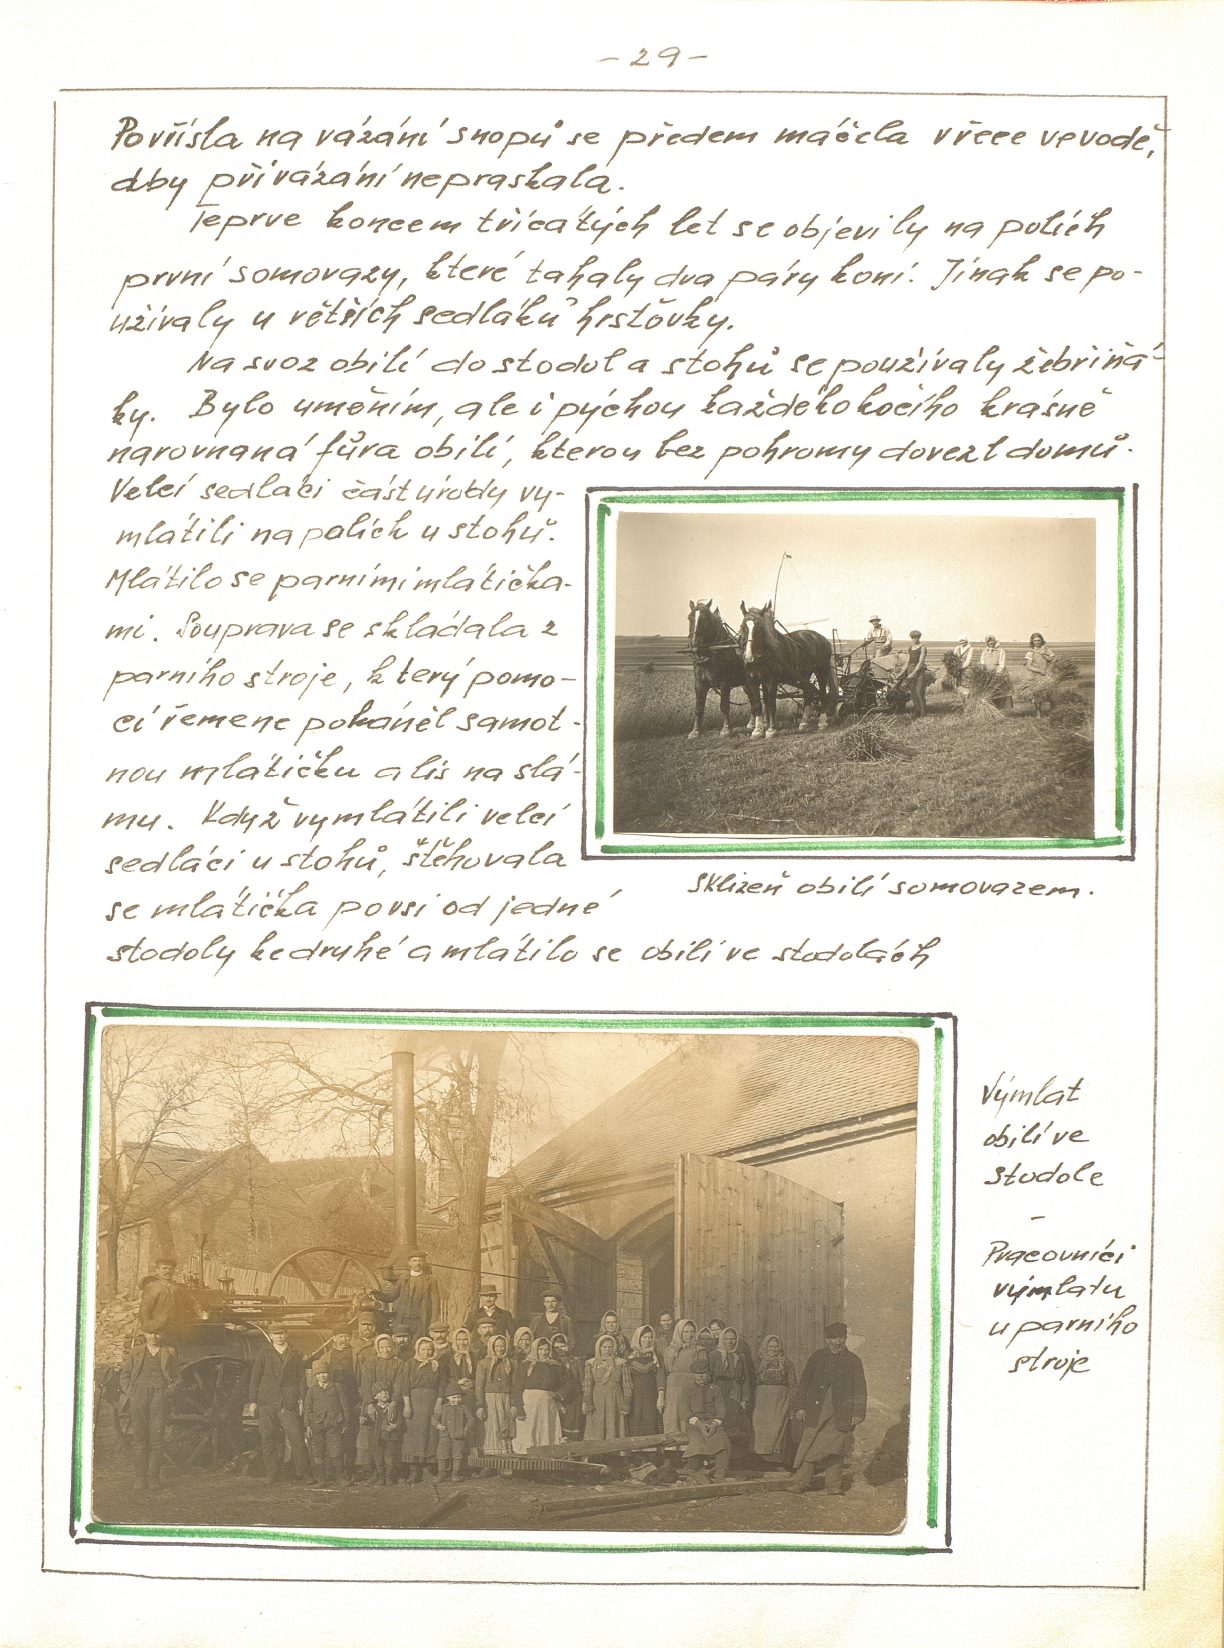 - 29 -
Povřísla na vázání snopů se předem máčela v řece ve vodě,
aby při vázání nepraskala.
Teprve koncem třicátých let se objevily na polích
první somovazy, které tahaly dva páry koní. Jinak se po-
užívaly u větších sedláků hrsťovky.
Na svoz obilí do stodol a stohů se používaly žebřiňá-
ky. Bylo uměním, ale i pýchou každého kočího krásně
narovnaná fůra obilí, kterou bez pohromy dovezl domů.
Velcí sedláci část úrody vy-
mlátili na polích u stohů.
Mlátilo se parními mlátička-
mi. Souprava se skládala z
parního stroje, který pomo-
cí řemene poháněl samot-
nou mlátičku a lis na slá-
mu. Když vymlátili velcí
sedláci u stohů, štěhovala
se mlátička po vsi od jedné
stodoly ke druhé a mlátilo se obilí ve stodolách
Sklizeň obilí somovazem.
Výmlat
obilí ve
stodole
-
Pracovníci
výmlatu
u parního
stroje